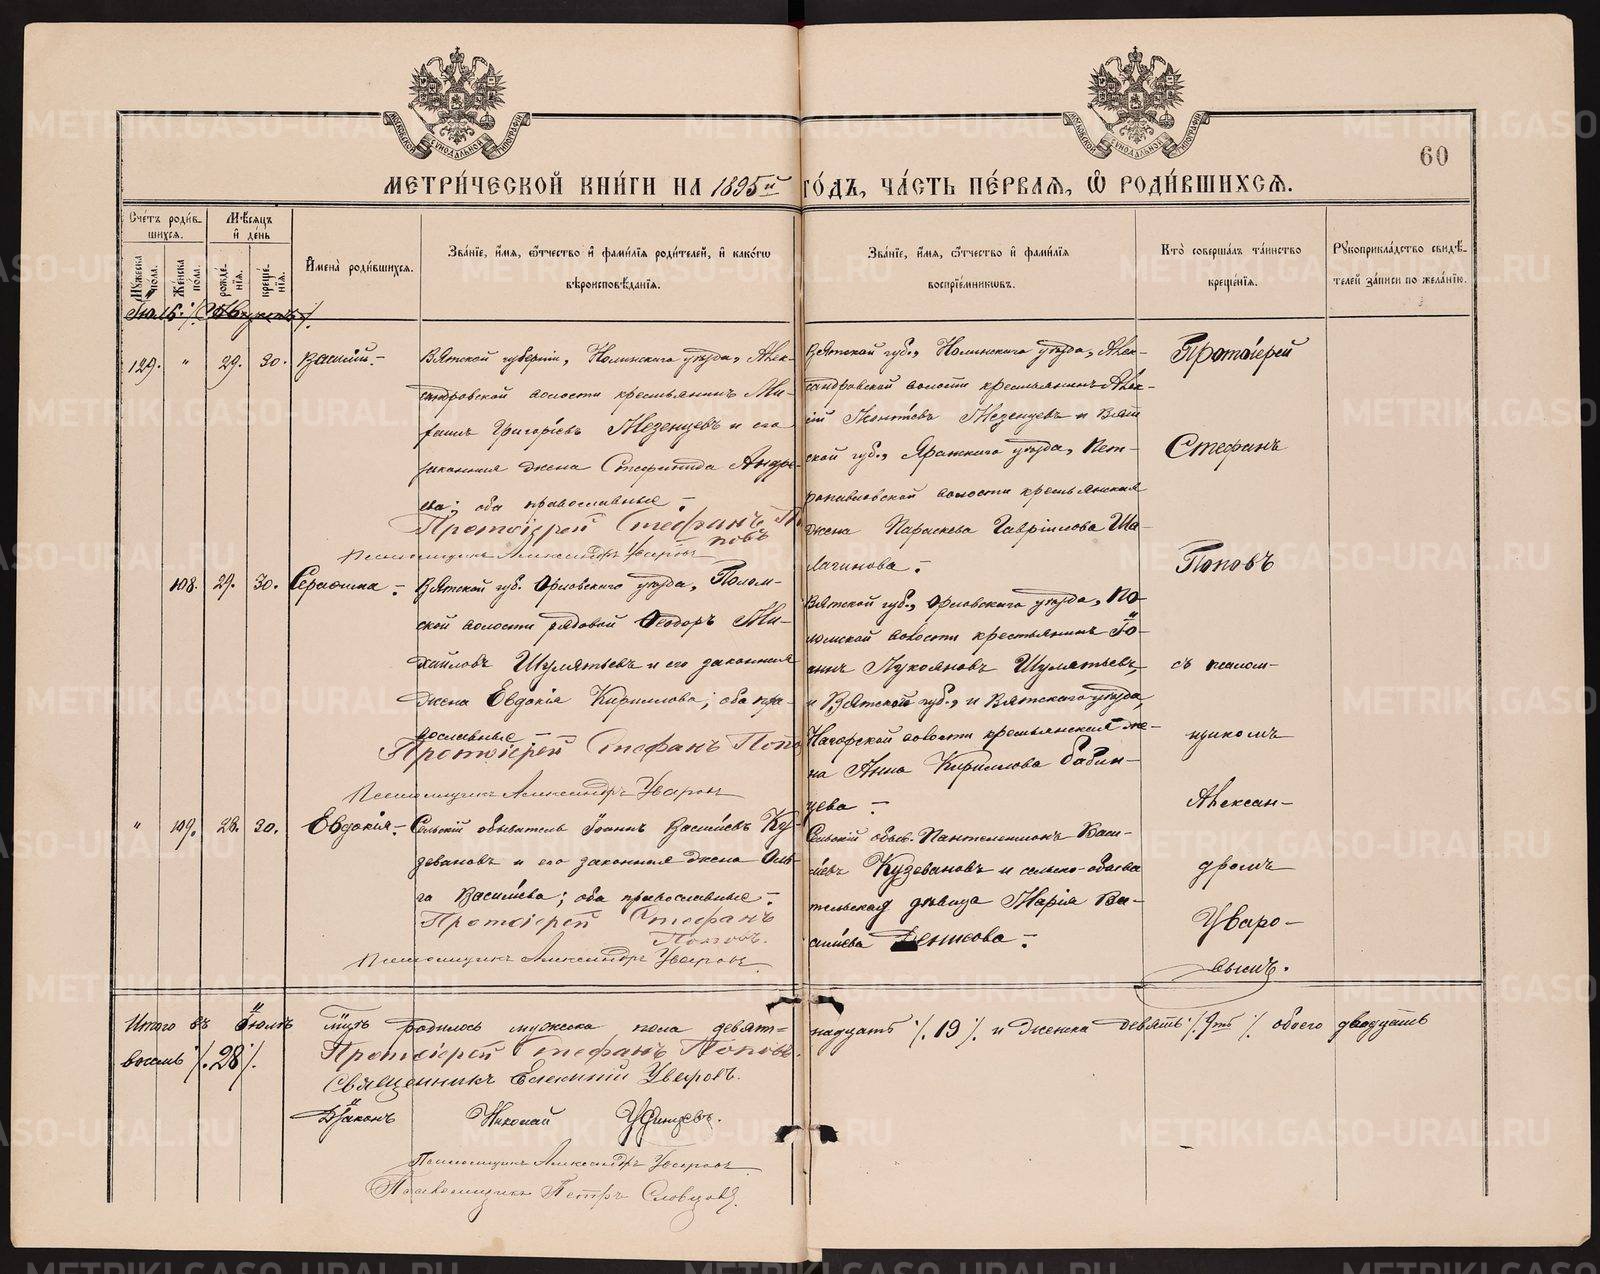 60
МЕТРИ́ЧЕСКОЙ КНИ́ГИ НА 1895й ГО́ДЪ, ЧА́СТЬ ПЕ́РВАЯ, Ѽ РОДИ́ВШИХСЯ.
Сче́тъ роди́в-
шихся.
Мѣ́сяцъ
и҆ де́нь
Му́жеска по́ла.
Же́нска по́ла.
рожде́-
нїя.
креще́-
нїя.
И҆мена̀ роди́вшихся.
Зва́нїе, и҆́мя, ѻ҆́тчество и҆ фамі́лїя роди́телей, и҆ како́гѡ
вѣроисповѣ́данїя.
Зва́нїе, и҆́мя, ѻ҆́тчество и҆ фамі́лїя
воспрїе́мникѡвъ.
Кто̀ соверша́лъ та́инство
креще́нїя.
Рꙋкоприкла́дство свидѣ́-
телей за́писи по жела́нїю.
129. " 29. 30. Василій. –
Вятской губерніи, Нолинскаго уѣзда, Алек-
сандровской волости крестьянинъ Ми-
хаилъ Григоріевъ Мезенцевъ и его
законная жена Стефанида Андре-
ева; оба православные –
Протоіерей Стефанъ По
повъ
Псаломщикъ Александръ Уваровъ
Вятской губ., Нолинскаго уѣзда, Алек-
сандровской волости крестьянинъ Алек-
сій Леонтіевъ Мезенцевъ и Вят
ской губ., Яранскаго уѣзда, Пет-
ропавловской волости крестьянская
жена Параскева Гавріилова Ша-
лагинова. –
108. 29. 30. Серафима. –
Вятской губ. Орловскаго уѣзда, Полом-
ской волости рядовой Ѳеодоръ Ми-
хайловъ Шулятьевъ и его законная
жена Евдокія Кириллова; оба пра-
вославные –
Протоіерей Стефанъ Попо
Псаломщикъ Александръ Уваровъ
Вятской губ., Орловскаго уѣзда, По-
ломской волости крестьянинъ Іо-
аннъ Лукояновъ Шулятьевъ,
и Вятской губ., и Вятскаго уѣзда,
Нагорской волости крестьянская же-
на Анна Кириллова Бабин-
цева –
" 109. 28. 30. Евдокія. –
Сельскій обыватель Іоаннъ Васильевъ Ку-
зевановъ и его законная жена Оль-
га Васильева; оба православные. –
Протоіерей Стефанъ
Поповъ.
Псаломщикъ Александръ Уваровъ
Сельскій обыв. Пантелеимонъ Васи-
льевъ Кузевановъ и сельско-обыва
тельская дѣвица Марія Ва-
сильева Денисова –
Протоіерей
Стефанъ
Поповъ
съ псалом-
щикомъ
Алексан-
дромъ
Уваро-
вымъ.
Итого въ Іюлѣ мцѣ родилось мужска пола девят-надцать ./.19./. и женска девять ./.9ть./. обоего двадцать
восемь ./.28./.
Протоіерей Стефанъ Поповъ.
Священникъ Уваровъ.
Діаконъ Николай Уфинцевъ.
Псаломщикъ Александръ Уваровъ
Псаломщикъ Петръ Словцовъ.
METRIKI.GASO-URAL.RU